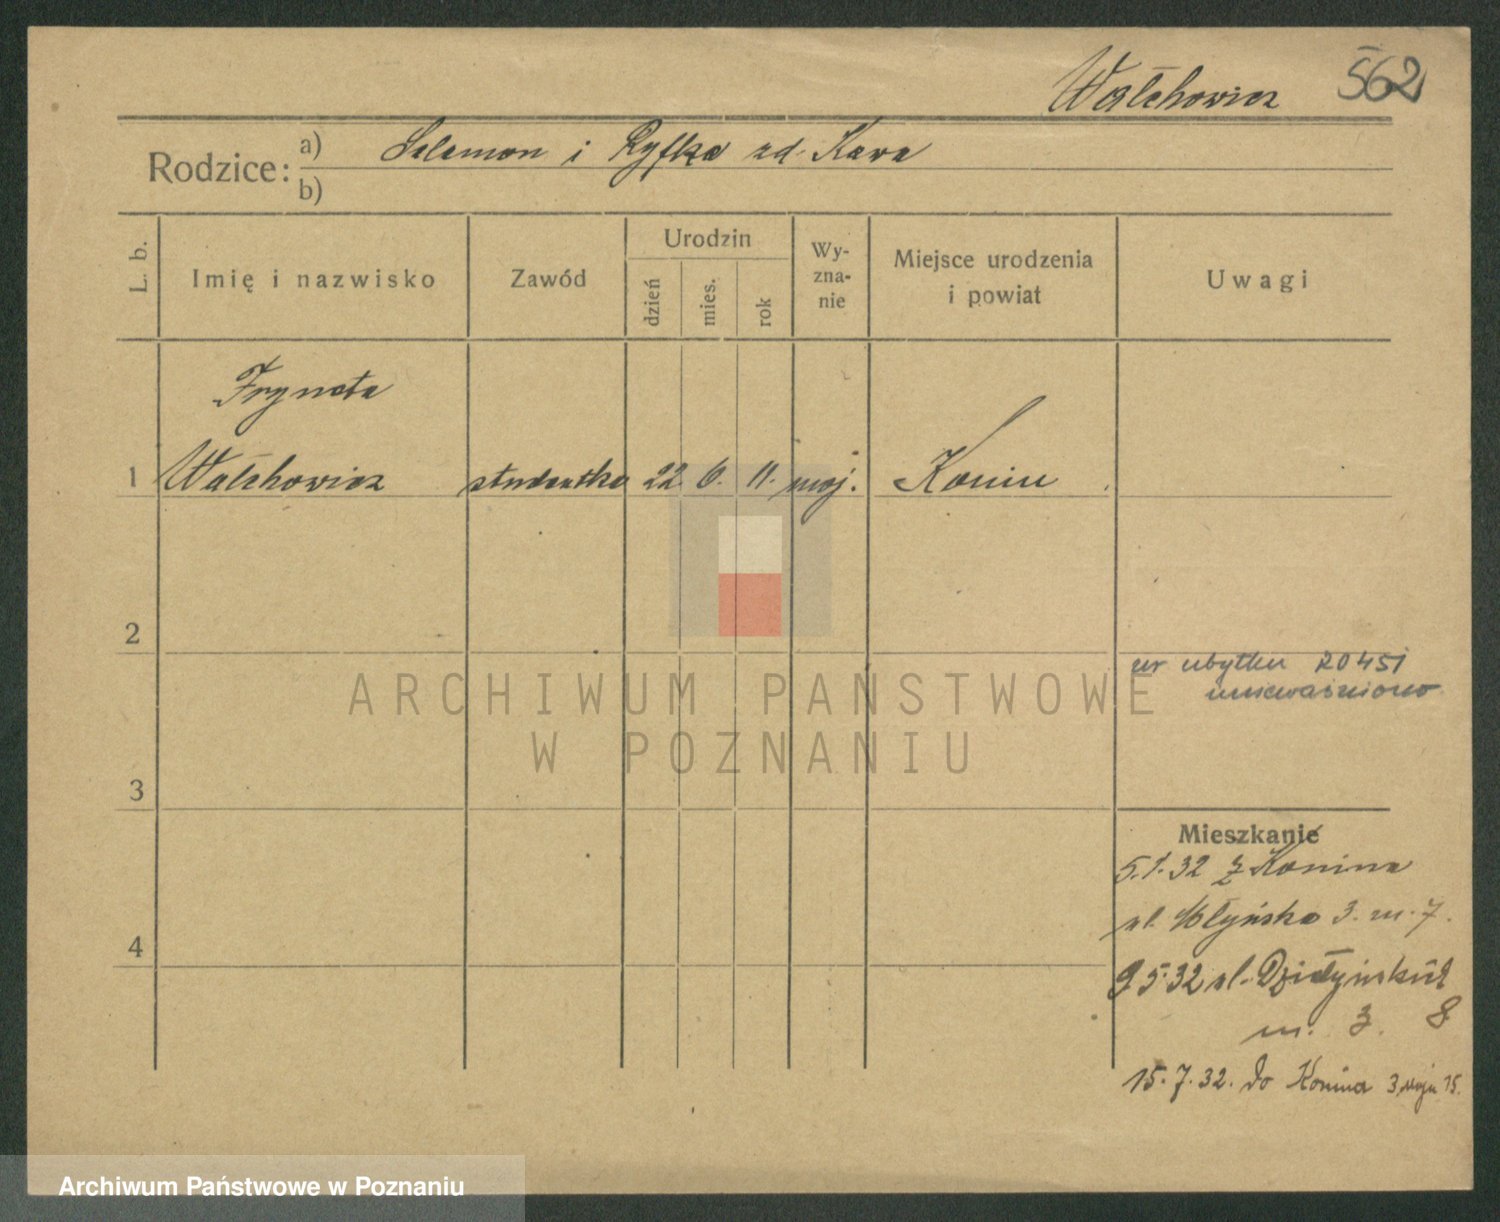 Wałchowicz 562
Rodzice: a) Salamon i Ryfka zd. Kawa
b)
L. b. Imię i nazwisko Zawód Urodzin dzień mies. rok Wy-zna-nie Miejsce urodzenia i powiat Uwagi
Fryneta
1 Wałchowicz studentka 22. 6. 11. moj. Konin
2
nr ubytku 20451
unieważniono
3
Mieszkanie
5.1.32 z Konina
ul. Młyńska 3. m. 7.
4
9 5.32 ul. Działyńskich
m. 3. 8
15.7.32. do Konina 3 Maja 15.
ARCHIWUM PAŃSTWOWE
W POZNANIU
Archiwum Państwowe w Poznaniu